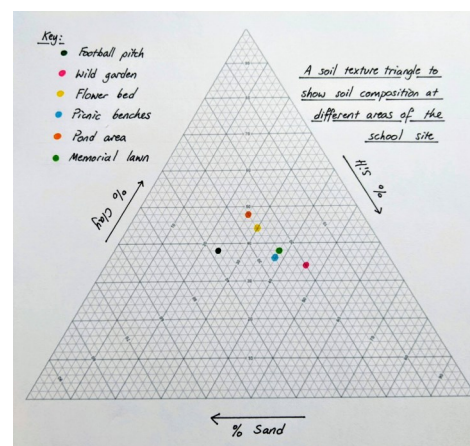 Key:
Football pitch
Wild garden
Flower bed
Picnic benches
Pond area
Memorial lawn
A soil texture triangle to
show soil composition at
different areas of the
school site
% Clay
% Silt
% Sand